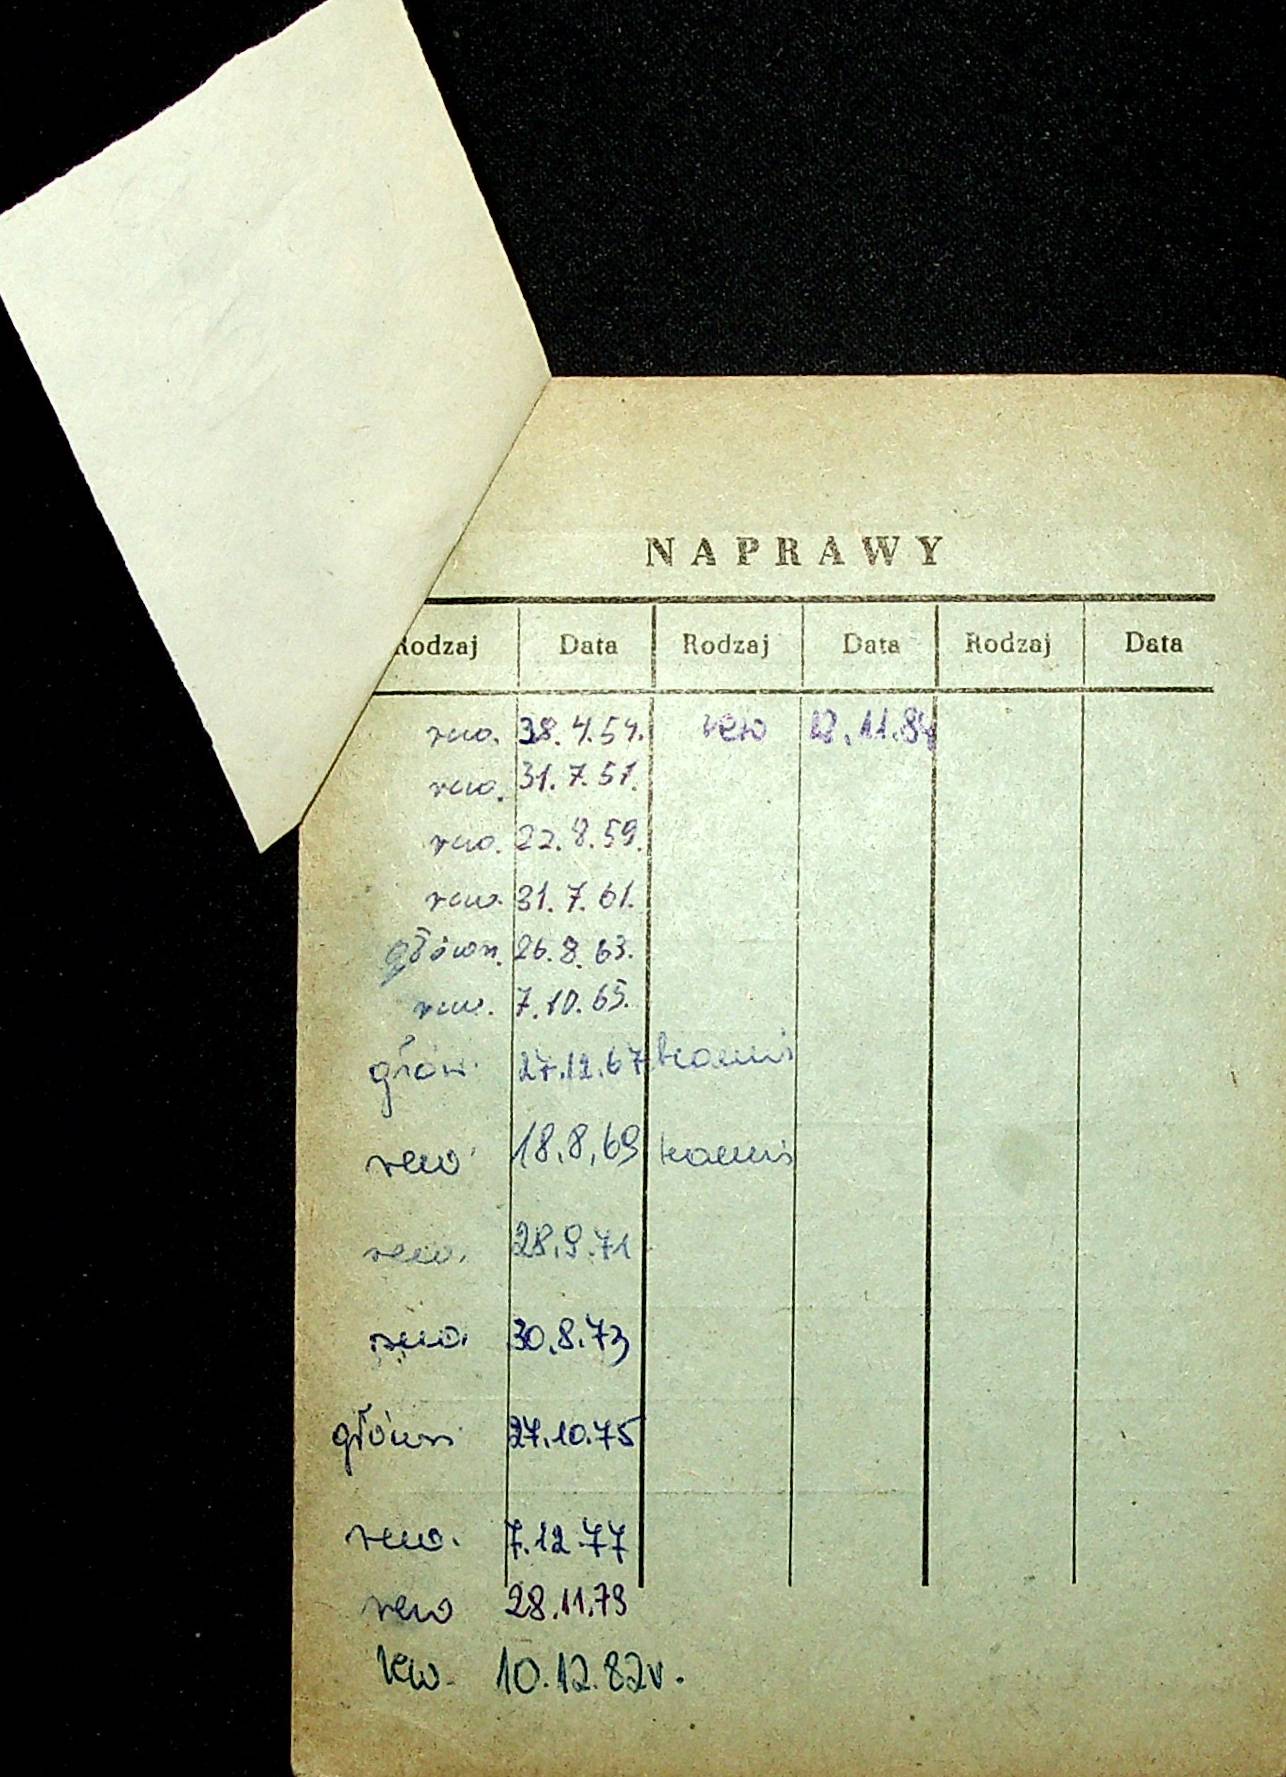 NAPRAWY
Rodzaj Data Rodzaj Data Rodzaj Data
rew. 38.4.54. rew 12.11.84
rew. 31.7.57.
rew. 22.8.59.
rew. 31.7.61.
główn. 26.8.63.
rew. 7.10.65.
głów. 27.12.67
rew 18.8.69
rew. 28.9.71
rew. 30.8.73
główn 27.10.75
rew. 7.12.77
rew 28.11.79
rew. 10.12.82r.